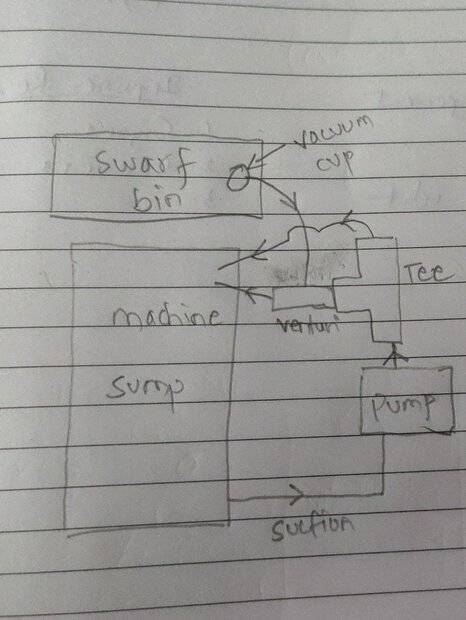 swarf
bin
vacuum
cup
Tee
venturi
machine
sump
Pump
suction